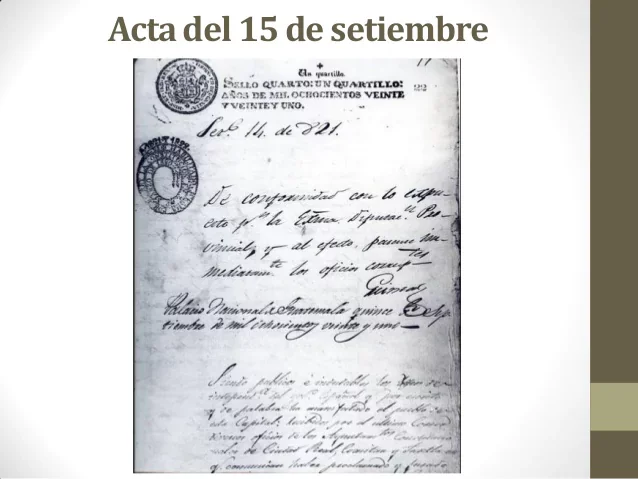 Acta del 15 de setiembre
17
Un quartillo.
SELLO QUARTO: UN QUARTILLO:
AÑOS DE MIL OCHOCIENTOS VEINTE
Y VEINTE Y UNO.
14. de 821.
De conformidad con lo expu-
esto p.r la Exma. Diputac.n Pro-
vincial, y al efecto, pasense in-
mediatam.te los oficios
Palacio Nacional de Guatemala quince de Sep-
tiembre de mil ochocientos veinte y uno
Siendo publicos é indudables los deseos de
independ.a del Español y por escrito
y de palabra ha manifestado el pueblo de
esta Capital; recibidos por el ultimo Correo
diversos oficios de los Ayuntam.tos Constitucio-
nales de Ciudad Real, Comitan y Tuxtla
q.e comunican haber proclamado y jurado